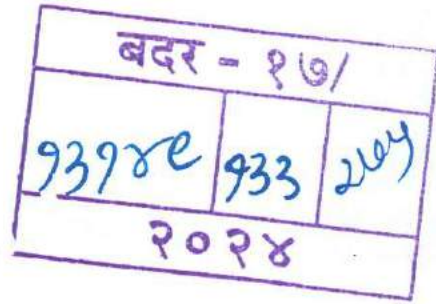 बदर - १७/
१३१४९ १३३
२०२४